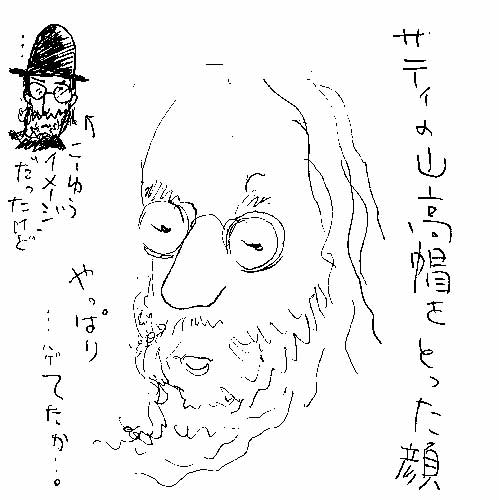 サティの山高帽をとった顔
…
↑こーゆう
イメージ
だったけど
やっぱり
…ハゲてたか…。